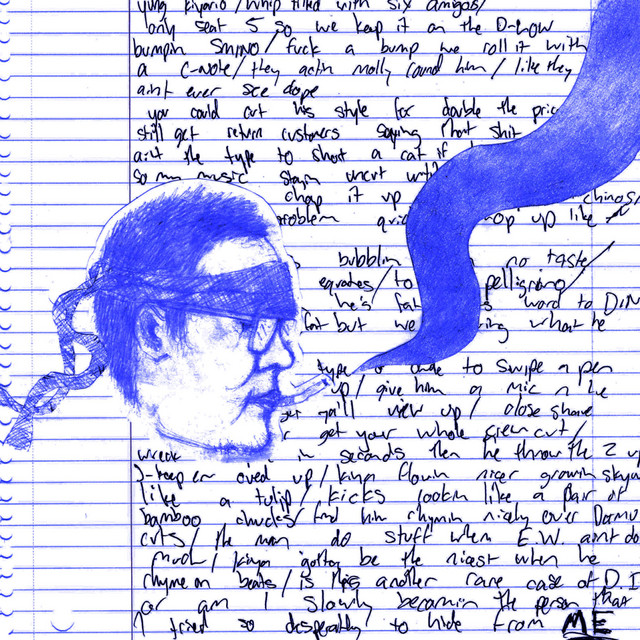 yung kiyario / whip filled with six amigos/
only seat 5 so we keep it on the D-low
bumpin SMINO / fuck a bump we roll it with
a C-note / they actin molly round him / like they
aint ever see dope
you could cut his style for double the pric
still get return customers saying that shit
aint the type to shoot a cat if
so my music stayin uncut until
chop it up chinos/
problem quic op up like
bubblin no taste
equates / to pelligrino
he's fat word to DIN
fat but we ing what he
type o dude to swipe a pen
up / give him a mic n he
get ya'll view up / close shave
get your whole crew cut /
wreak in seconds then he throw the 2 up
keep em oved up / kiyan flowin nicer growin skyw
like a tulip / kicks lookin like a pair of
bamboo chucks / find him rhymin nicely over
cuts / the man do stuff when E.W. aint do
much / kiyan gotta be the nicest when he
rhyme on beats / is this another rare case of D.I
or am I slowly becomin the person that
I tried so desperately to hide from ME